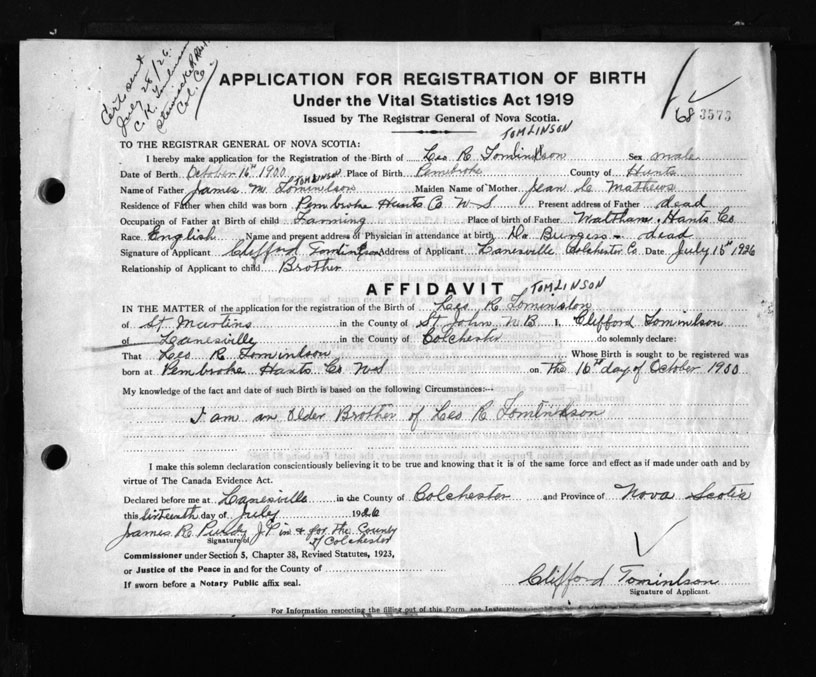 Cert sent
July 28/26
C. R. Tomlinson
Stewiacke
Col. Co.
APPLICATION FOR REGISTRATION OF BIRTH
Under the Vital Statistics Act 1919
Issued by The Registrar General of Nova Scotia.
68 3573
TOMLINSON
TO THE REGISTRAR GENERAL OF NOVA SCOTIA:
I hereby make application for the Registration of the Birth of Leo R Tominlson Sex male
Date of Birth October 16th 1900 Place of Birth Pembroke County of Hants
TOMLINSON
Name of Father James M Tominlson Maiden Name of Mother Jean C Mathews
Residence of Father when child was born Pembroke Hants Co N S Present address of Father dead
Occupation of Father at Birth of child Farming Place of birth of Father Waltham Hants Co
Race English Name and present address of Physician in attendance at birth Dr Burgess - dead
Signature of Applicant Clifford Tominlson Address of Applicant Lanesville Colchester Co Date July 15th 1926
Relationship of Applicant to child Brother
AFFIDAVIT
TOMLINSON
IN THE MATTER of the application for the registration of the Birth of Leo R Tominlson
of St Martins in the County of St John N B I, Clifford Tominlson
of Lanesville in the County of Colchester do solemnly declare:
That Leo R Tominlson Whose Birth is sought to be registered was
born at Pembroke Hants Co N S on The 16th day of October 1900
My knowledge of the fact and date of such Birth is based on the following Circumstances:--
I am an Older Brother of Leo R Tominlson
I make this solemn declaration conscientiously believing it to be true and knowing that it is of the same force and effect as if made under oath and by
virtue of The Canada Evidence Act.
Declared before me at Lanesville in the County of Colchester and Province of Nova Scotia
this sixteenth day of July 1926
James R. Purdy J.P in & for the County
Signature of of Colchester
Commissioner under Section 5, Chapter 38, Revised Statutes, 1923,
or Justice of the Peace in and for the County of
If sworn before a Notary Public affix seal.
Clifford Tominlson
Signature of Applicant.
For Information respecting the filling out of this Form, see